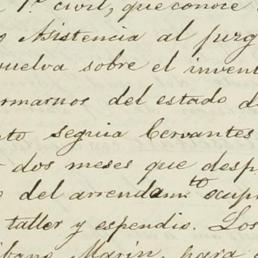 1º civil, que conoce
Asistencia al juzg
uelva sobre el invent
ormarnos del estado d
nto seguia Cervantes
dos meses que desp
del arrendamto ocup
taller y espendio. Los
bano Marin, para